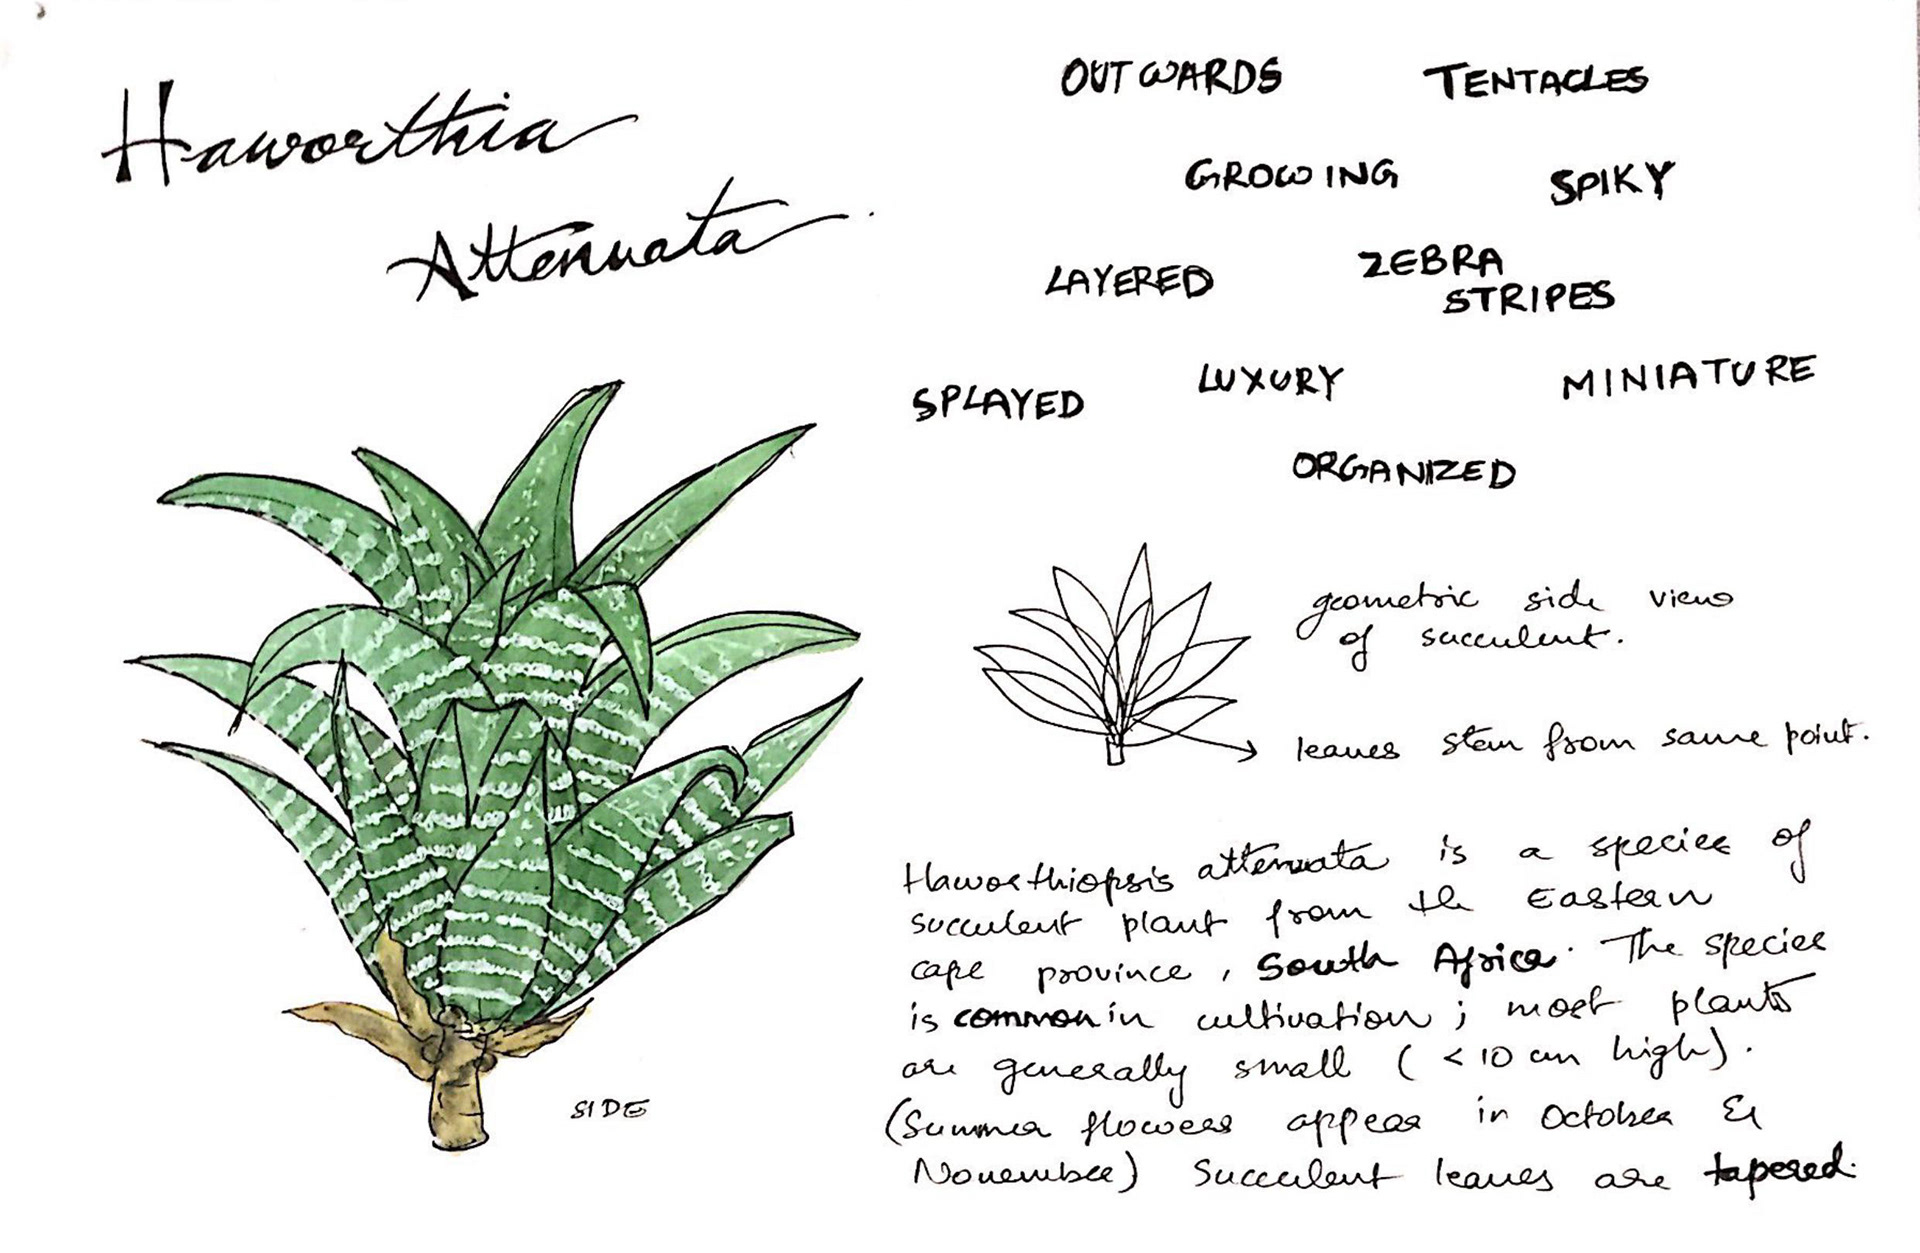 Haworthia
Attenuata
OUTWARDS TENTACLES
GROWING SPIKY
LAYERED ZEBRA
STRIPES
SPLAYED LUXURY MINIATURE
ORGANIZED
geometric side view
of succulent.
leaves stem from same point.
Haworthiopsis attenuata is a species of
succulent plant from the Eastern
cape province, South Africa. The species
is common in cultivation; most plants
are generally small (<10 cm high).
(Summer flowers appear in October &
November) Succulent leaves are tapered.
SIDE